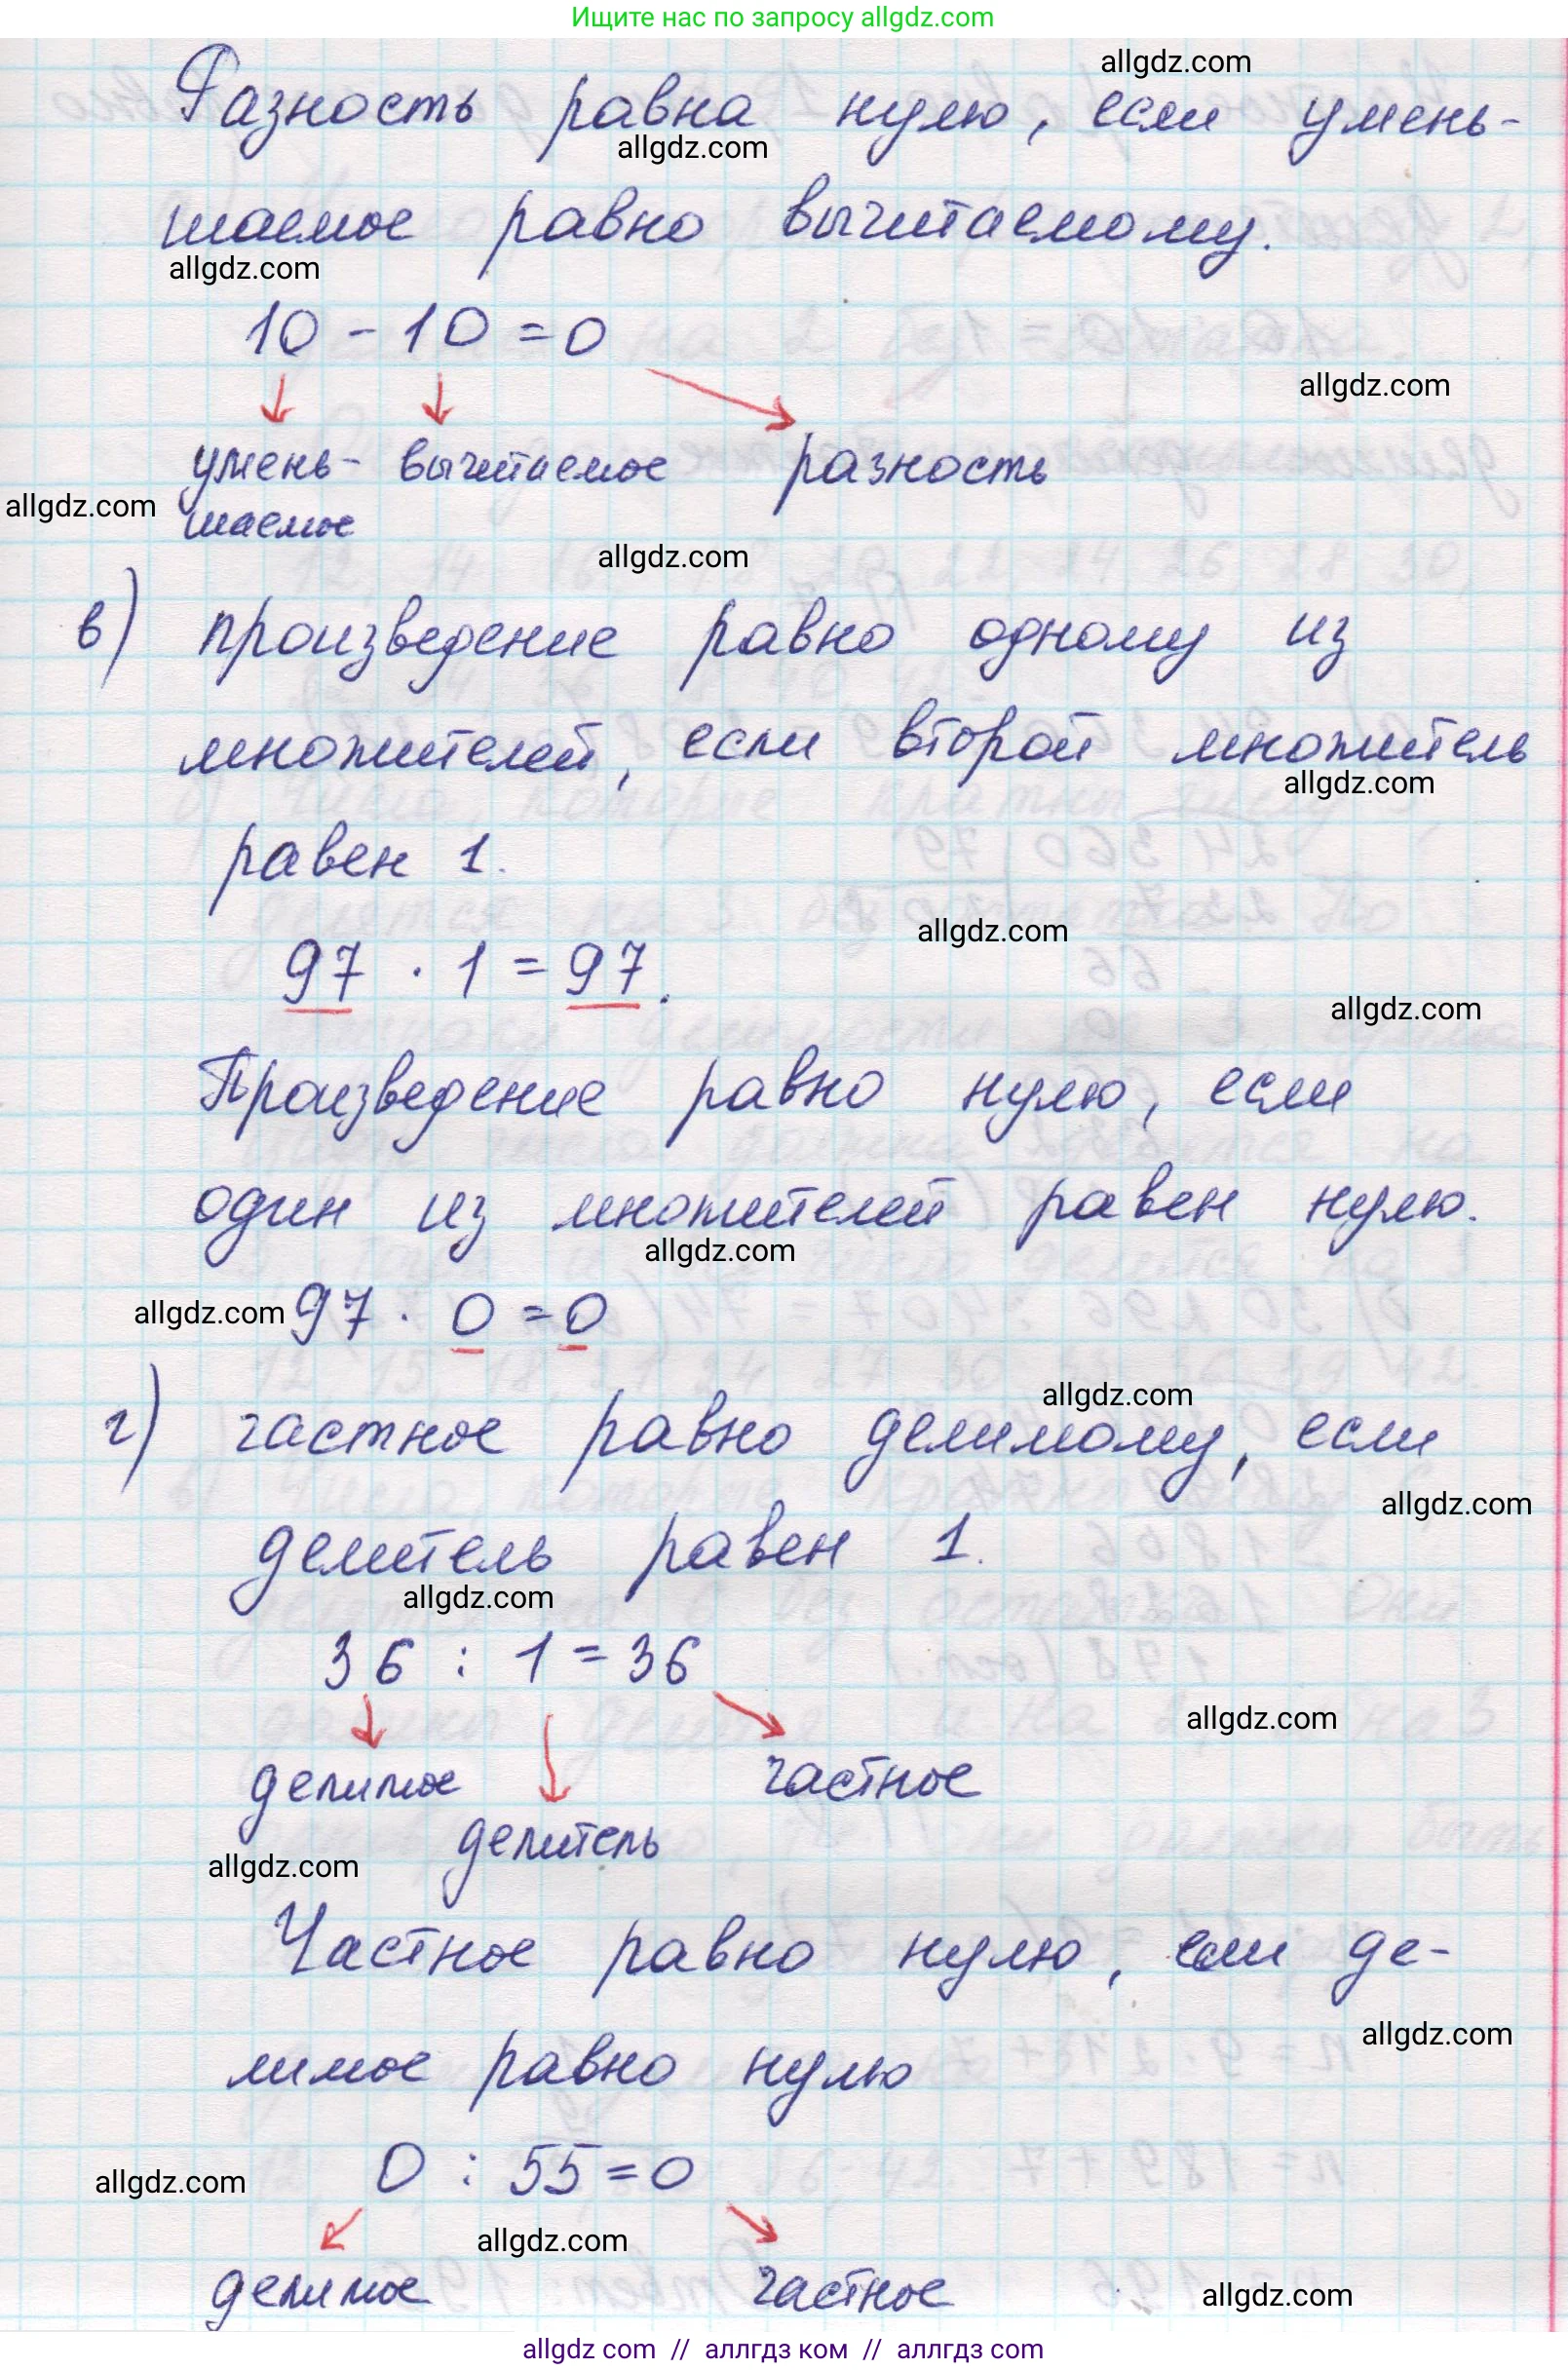 Ищите нас по запросу allgdz.com
allgdz.com
Разность равна нулю, если умень-
allgdz.com
шаемое равно вычитаемому.
allgdz.com
10 - 10 = 0
allgdz.com
умень- вычитаемое разность
allgdz.com
шаемое
allgdz.com
в) произведение равно одному из
множителей, если второй множитель
allgdz.com
равен 1.
allgdz.com
97 · 1 = 97.
allgdz.com
Произведение равно нулю, если
один из множителей равен нулю.
allgdz.com
allgdz.com 97 · 0 = 0
allgdz.com
г) частное равно делимому, если
allgdz.com
делитель равен 1.
allgdz.com
36 : 1 = 36
allgdz.com
делимое частное
делитель
allgdz.com
Частное равно нулю, если де-
allgdz.com
лимое равно нулю
allgdz.com 0 : 55 = 0
allgdz.com
делимое частное allgdz.com
allgdz.com // аллгдз ком // аллгдз com